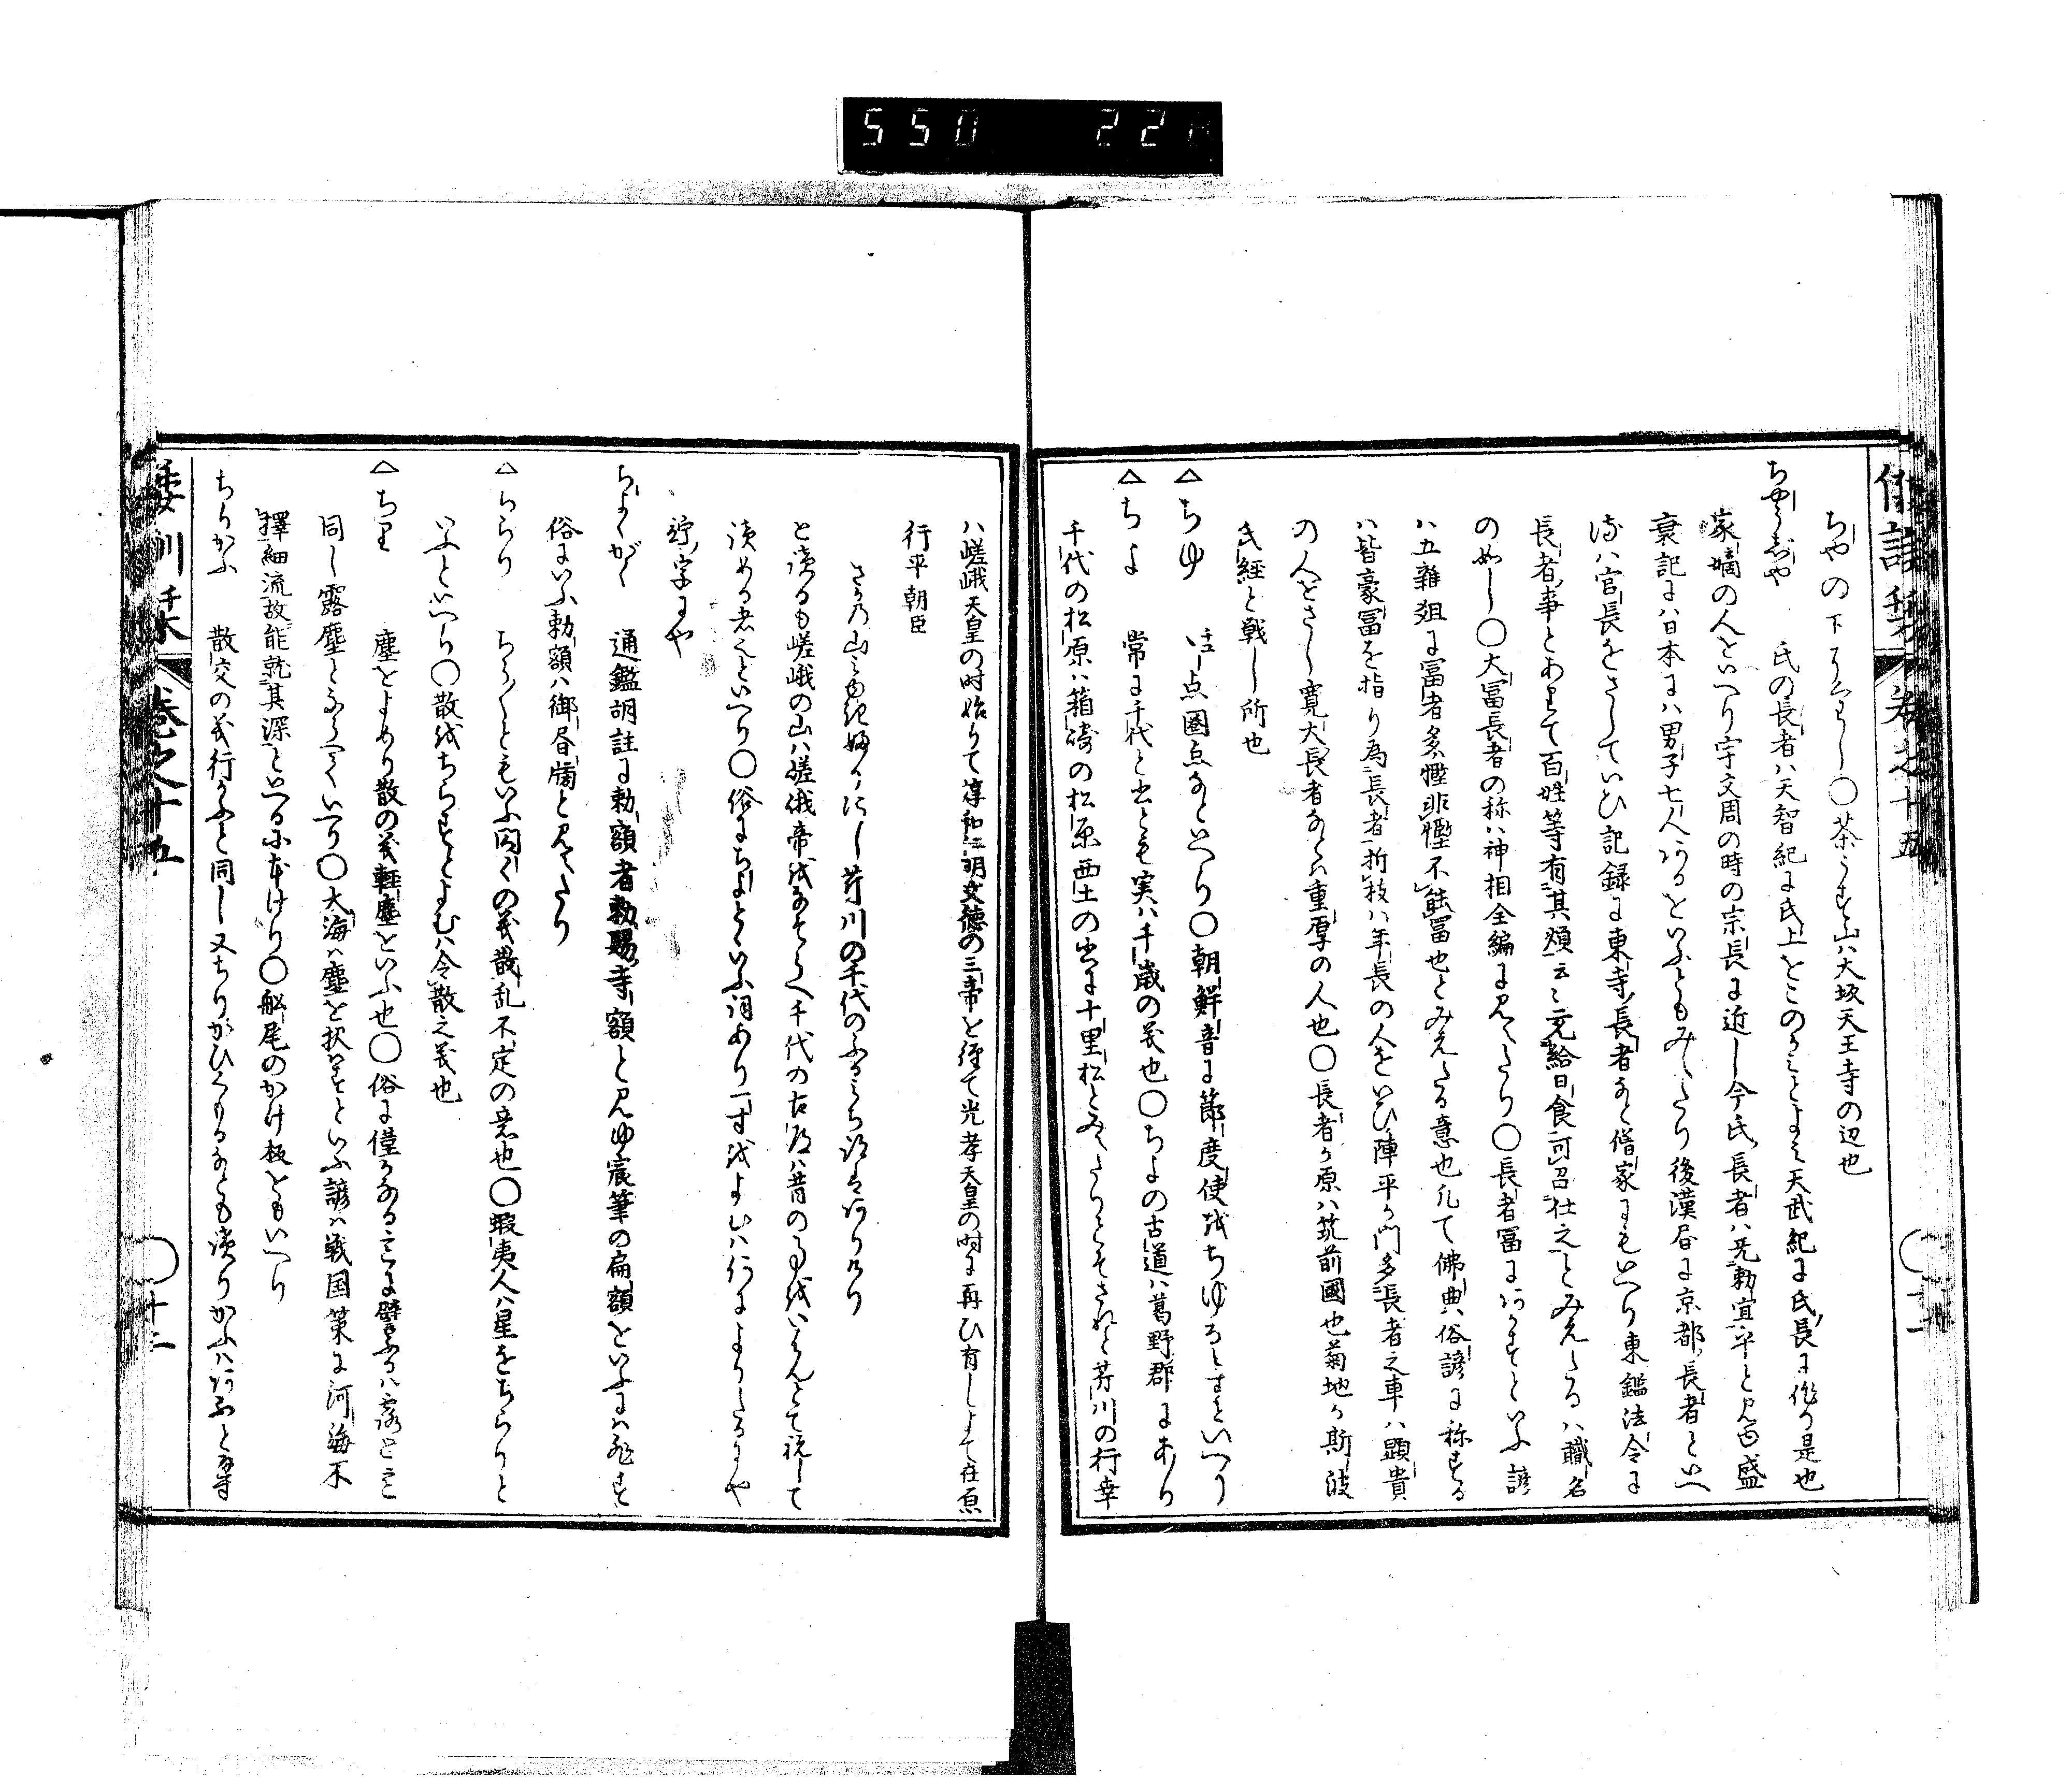 550 22
ぢやの下に〇茶うす山ハ大坂天王寺の辺也
ちやうじや 氏の長者ハ天智紀に氏上をこのかみとよみ天武紀に氏長に作る是也
家嫡の人をいへり宇文周の時の宗長に近し今氏長者ハ兄勅宣平と見ゆ盛
衰記にハ日本にハ男子七人あるをいふともみえたり後漢書に京都長者といへ
るハ官長をさしていひ記録に東寺長者など僧家にもいへり東鑑法令に
長者事とありて百姓等有其煩云々充給日食可召仕之とみえたるハ職名
の如し〇大冨長者の称ハ神相全編に見えたり〇長者冨にあかずといふ諺
ハ五雜爼に冨者多慳非慳不能冨也とみえたる意也凡て佛典俗諺に称する
ハ皆豪冨を指り為長者折枝ハ年長の人をいひ陣平か門多長者之車ハ顕貴
の人をさし寛大長者などハ重厚の人也〇長者か原ハ筑前國也菊地か斯波
氏經と戦し所也
△ちゆ 注し点圏点などいへり〇朝鮮音に節度使をちゆるとすといへり
△ちよ 常に千代と書とも実ハ千歳の義也〇ちよの古道ハ葛野郡にあり
千代の松原ハ箱崎の松原西土の書に十里松とみえたりとそされと芹川の行幸
ハ嵯峨天皇の時始りて淳和仁明文徳の三帝を経て光孝天皇の時に再ひ有しよて在原
行平朝臣
さかの山みゆき絶にし芹川の千代のふるみち跡ハありけり
と讀るも嵯峨の山ハ嵯峨帝をなそらへ千代の古道ハ昔の事をいはんとて祝して
讀める者也といへり〇俗にちよといふ詞あり一寸をよむハ何によりたるにや
佇字にや
ちよくがく 通鑑胡註に勅額者勅賜寺額と見ゆ宸筆の扁額をいふにハ非す
俗にいふ勅額ハ御書牓と見えたり
△ちらり ちら〱ともいふ閃〱の義散乱不定の意也〇蝦夷人ハ星をちらりと
いふといへり〇散をちらすとよむハ令散之義也
△ちり 塵をよめり散の義軽塵といふ也〇俗に僅かなる事に譬ふるハ露とこ
同し露塵とふるくいへり〇大海ハ塵を択はずといふ諺ハ戦国策に河海不
擇細流故能就其深といへるに本けり〇舩尾のかけ板をもいへり
ちりかふ 散交の義行かふと同し又ちりがひくもるなとも讀りかふハあふと通す
倭訓栞 巻之十五 十二